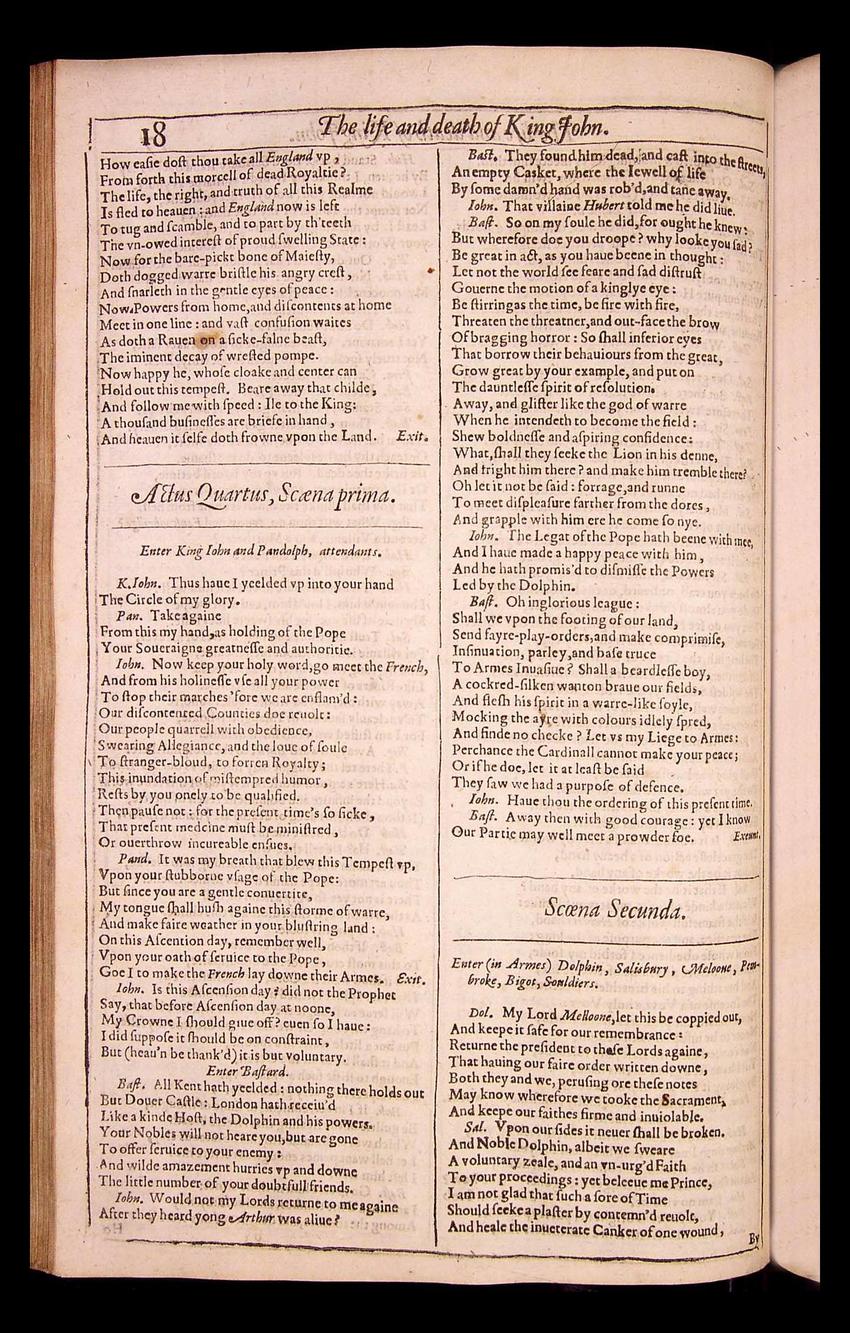 18
The life and death of King John.
How easie dost thou take all England vp,
From forth this morcell of dead Royaltie?
The life, the right, and truth of all this Realme
Is fled to heauen: and England now is left
To tug and scamble, and to part by th'teeth
The vn-owed interest of proud swelling State:
Now for the bare-pickt bone of Maiesty,
Doth dogged warre bristle his angry crest,
And snarleth in the gentle eyes of peace:
Now Powers from home, and discontents at home
Meet in one line: and vast confusion waites
As doth a Rauen on a sicke-falne beast,
The iminent decay of wrested pompe.
Now happy he, whose cloake and center can
Hold out this tempest. Beare away that childe,
And follow me with speed: Ile to the King:
A thousand businesses are briefe in hand,
And heauen it selfe doth frowne vpon the Land. Exit.
Actus Quartus, Scæna prima.
Enter King Iohn and Pandolph, attendants.
K.Iohn. Thus haue I yeelded vp into your hand
The Circle of my glory.
Pan. Take againe
From this my hand, as holding of the Pope
Your Soueraigne greatnesse and authoritie.
Iohn. Now keep your holy word, go meet the French,
And from his holinesse vse all your power
To stop their marches 'fore we are enflam'd:
Our discontented Counties doe reuolt:
Our people quarrell with obedience,
Swearing Allegiance, and the loue of soule
To stranger-bloud, to forren Royalty;
This inundation of mistempred humor,
Rests by you onely to be qualified.
Then pause not: for the present time's so sicke,
That present medcine must be ministred,
Or ouerthrow incureable ensues.
Pand. It was my breath that blew this Tempest vp,
Vpon your stubborne vsage of the Pope:
But since you are a gentle conuertite,
My tongue shall hush againe this storme of warre,
And make faire weather in your blustring land:
On this Ascention day, remember well,
Vpon your oath of seruice to the Pope,
Goe I to make the French lay downe their Armes. Exit.
Iohn. Is this Ascension day? did not the Prophet
Say, that before Ascension day at noone,
My Crowne I should giue off? euen so I haue:
I did suppose it should be on constraint,
But (heau'n be thank'd) it is but voluntary.
Enter Bastard.
Bast. All Kent hath yeelded: nothing there holds out
But Douer Castle: London hath receiu'd
Like a kinde Host, the Dolphin and his powers.
Your Nobles will not heare you, but are gone
To offer seruice to your enemy:
And wilde amazement hurries vp and downe
The little number of your doubtfull friends.
Iohn. Would not my Lords returne to me againe
After they heard yong Arthur was aliue?
Bast. They found him dead, and cast into the streets,
An empty Casket, where the Iewell of life
By some damn'd hand was rob'd, and tane away.
Iohn. That villaine Hubert told me he did liue.
Bast. So on my soule he did, for ought he knew:
But wherefore doe you droope? why looke you sad?
Be great in act, as you haue beene in thought:
Let not the world see feare and sad distrust
Gouerne the motion of a kinglye eye:
Be stirring as the time, be fire with fire,
Threaten the threatner, and out-face the brow
Of bragging horror: So shall inferior eyes
That borrow their behauiours from the great,
Grow great by your example, and put on
The dauntlesse spirit of resolution.
Away, and glister like the god of warre
When he intendeth to become the field:
Shew boldnesse and aspiring confidence:
What, shall they seeke the Lion in his denne,
And fright him there? and make him tremble there?
Oh let it not be said: forrage, and runne
To meet displeasure farther from the dores,
And grapple with him ere he come so nye.
Iohn. The Legat of the Pope hath beene with mee,
And I haue made a happy peace with him,
And he hath promis'd to dismisse the Powers
Led by the Dolphin.
Bast. Oh inglorious league:
Shall we vpon the footing of our land,
Send fayre-play-orders, and make comprimise,
Insinuation, parley, and base truce
To Armes Inuasiue? Shall a beardlesse boy,
A cockred-silken wanton braue our fields,
And flesh his spirit in a warre-like soyle,
Mocking the ayre with colours idlely spred,
And finde no checke? Let vs my Liege to Armes:
Perchance the Cardinall cannot make your peace;
Or if he doe, let it at least be said
They saw we had a purpose of defence.
Iohn. Haue thou the ordering of this present time.
Bast. Away then with good courage: yet I know
Our Partie may well meet a prowder foe. Exeunt.
Scœna Secunda.
Enter (in Armes) Dolphin, Salisbury, Meloone, Pem-
broke, Bigot, Souldiers.
Dol. My Lord Melloone, let this be coppied out,
And keepe it safe for our remembrance:
Returne the president to these Lords againe,
That hauing our faire order written downe,
Both they and we, perusing ore these notes
May know wherefore we tooke the Sacrament,
And keepe our faithes firme and inuiolable.
Sal. Vpon our sides it neuer shall be broken.
And Noble Dolphin, albeit we sweare
A voluntary zeale, and an vn-urg'd Faith
To your proceedings: yet beleeue me Prince,
I am not glad that such a sore of Time
Should seeke a plaster by contemn'd reuolt,
And heale the inueterate Canker of one wound,
By